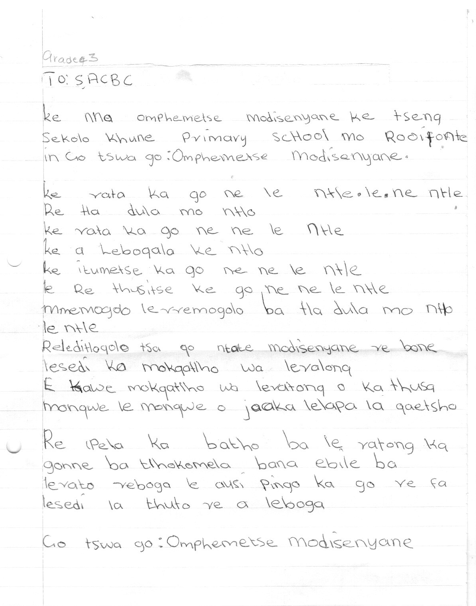 Grade 3
TO: SACBC
ke nna omphemetse modisenyane ke tseng
Sekolo Khune Primary School mo Rooifonte
in Go tswa go: Omphemetse modisenyane.
ke rata ka go ne le ntle.le.ne ntle
Re tla dula mo ntlo
ke rata ka go ne ne le ntle
ke a Lebogala ke ntlo
ke itumetse ka go ne ne le ntle
Re thusitse ke go ne ne le ntle
mmemogolo le rremogolo ba tla dula mo ntlo
le ntle
Releditlogolo tsa go ntate modisenyane re bone
lesedi ka mokgatlho wa leratong
E kawe mokgatlho wa leratong o ka thusa
mongwe le mongwe o jaaka lelapa la gaetsho
Re ipela ka batho ba le ratong ka
gonne ba tlhokomela bana ebile ba
lerato reboga le ausi Pingo ka go re fa
lesedi la thuto re a leboga
Go tswa go: Omphemetse modisenyane